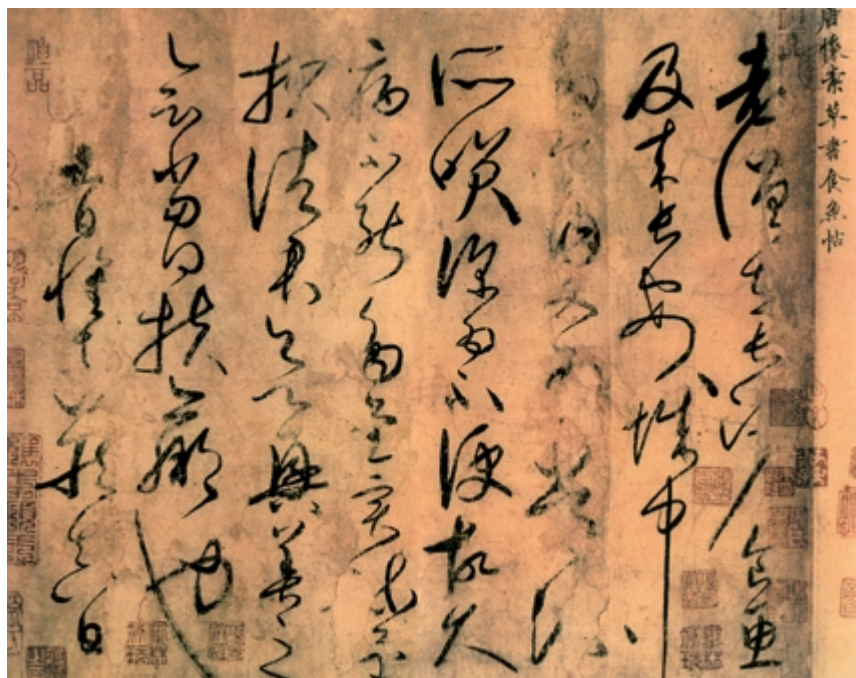 唐懷素草書食魚帖
老僧在長沙食魚
及来長安城中
多食肉又為常流
所笑深為不便故久
病不能多書實疏還
報諸君欲興善之
會當得扶羸也
九日懷素藏真白